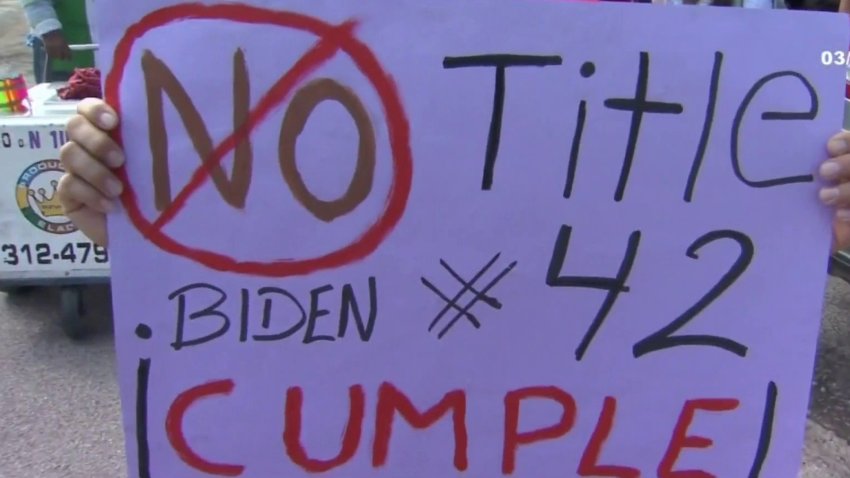 NO Title
BIDEN # 42
¡CUMPLE!
03/
312-479